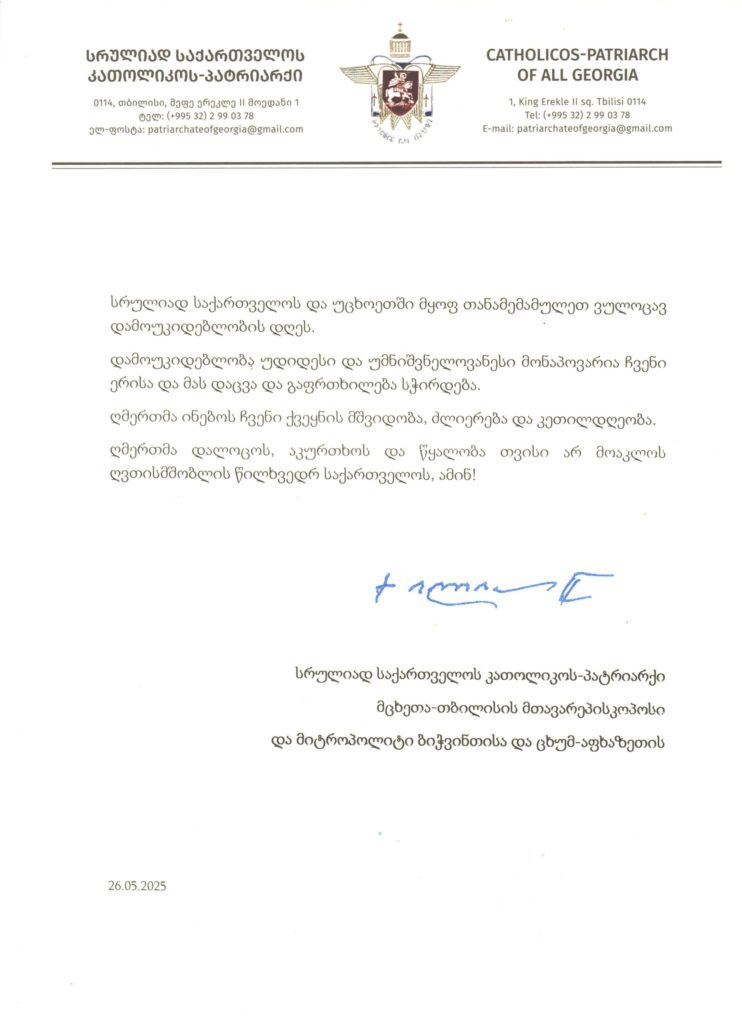 სრულიად საქართველოს
კათოლიკოს-პატრიარქი
0114, თბილისი, მეფე ერეკლე II მოედანი 1
ტელ: (+995 32) 2 99 03 78
ელ-ფოსტა: patriarchateofgeorgia@gmail.com
CATHOLICOS-PATRIARCH
OF ALL GEORGIA
1, King Erekle II sq. Tbilisi 0114
Tel: (+995 32) 2 99 03 78
E-mail: patriarchateofgeorgia@gmail.com
სრულიად საქართველოს და უცხოეთში მყოფ თანამემამულეთ ვულოცავ
დამოუკიდებლობის დღეს.
დამოუკიდებლობა უდიდესი და უმნიშვნელოვანესი მონაპოვარია ჩვენი
ერისა და მას დაცვა და გაფრთხილება სჭირდება.
ღმერთმა ინებოს ჩვენი ქვეყნის მშვიდობა, ძლიერება და კეთილდღეობა.
ღმერთმა დალოცოს, აკურთხოს და წყალობა თვისი არ მოაკლოს
ღვთისმშობლის წილხვედრ საქართველოს, ამინ!
სრულიად საქართველოს კათოლიკოს-პატრიარქი
მცხეთა-თბილისის მთავარეპისკოპოსი
და მიტროპოლიტი ბიჭვინთისა და ცხუმ-აფხაზეთის
26.05.2025